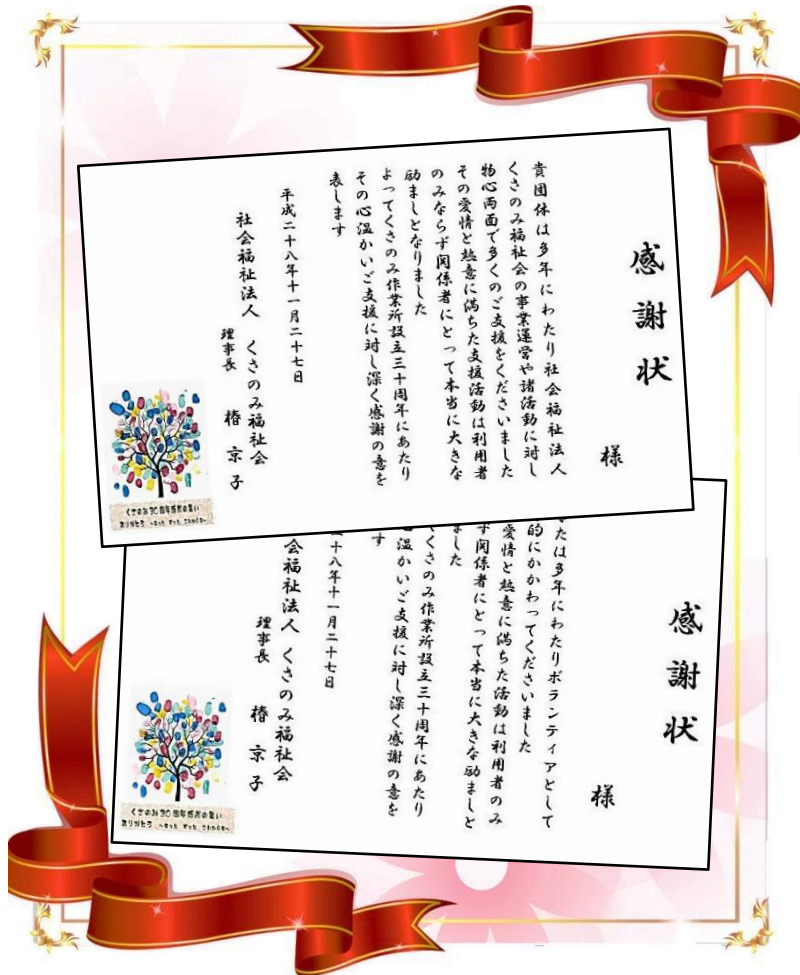 感謝状
様
貴団体は多年にわたり社会福祉法人
くさのみ福祉会の事業運営や諸活動に対し
物心両面で多くのご支援をくださいました
その愛情と熱意に満ちた支援活動は利用者
のみならず関係者にとって本当に大きな
励ましとなりました
よってくさのみ作業所設立三十周年にあたり
その心温かいご支援に対し深く感謝の意を
表します
平成二十八年十一月二十七日
社会福祉法人 くさのみ福祉会
理事長 椿 京子
くさのみ30周年感謝の集い
ありがとう ～もっと ずっと これからも～
感謝状
様
たは多年にわたりボランティアとして
的にかかわってくださいました
愛情と熱意に満ちた活動は利用者のみ
ず関係者にとって本当に大きな励ましと
ました
くさのみ作業所設立三十周年にあたり
温かいご支援に対し深く感謝の意を
す
十八年十一月二十七日
会福祉法人 くさのみ福祉会
理事長 椿 京子
くさのみ30周年感謝の集い
ありがとう ～もっと ずっと これからも～